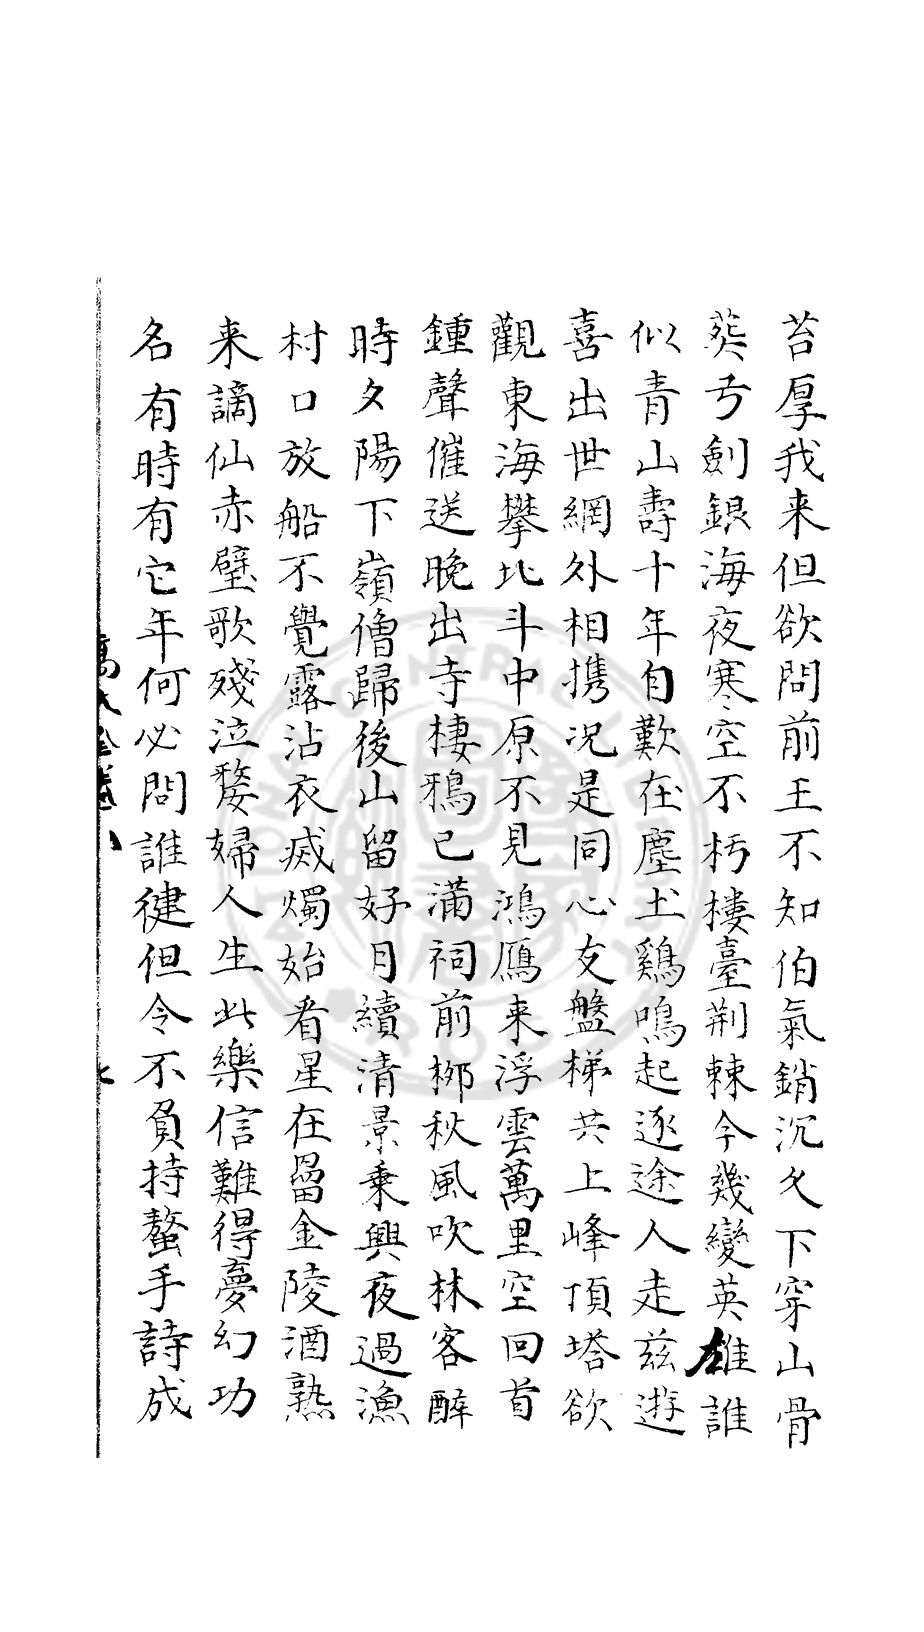 苔厚我来但欲問前王不知伯氣銷沉久下穿山骨
葬弓劍銀海夜寒空不朽樓臺荆棘今幾變英雄誰
似青山壽十年自歎在塵土鷄鳴起逐途人走兹遊
喜出世網外相携况是同心友盤梯共上峰頂塔欲
觀東海攀北斗中原不見鴻鴈来浮雲萬里空回首
鍾聲催送晚出寺棲鴉已滿祠前栁秋風吹林客醉
時夕陽下嶺僧歸後山留好月續清景乗興夜過漁
村口放船不覺露沾衣烕燭始看星在罶金陵酒熟
来謫仙赤壁歌殘泣嫠婦人生此樂信難得夢幻功
名有時有它年何必問誰健但令不負持螯手詩成